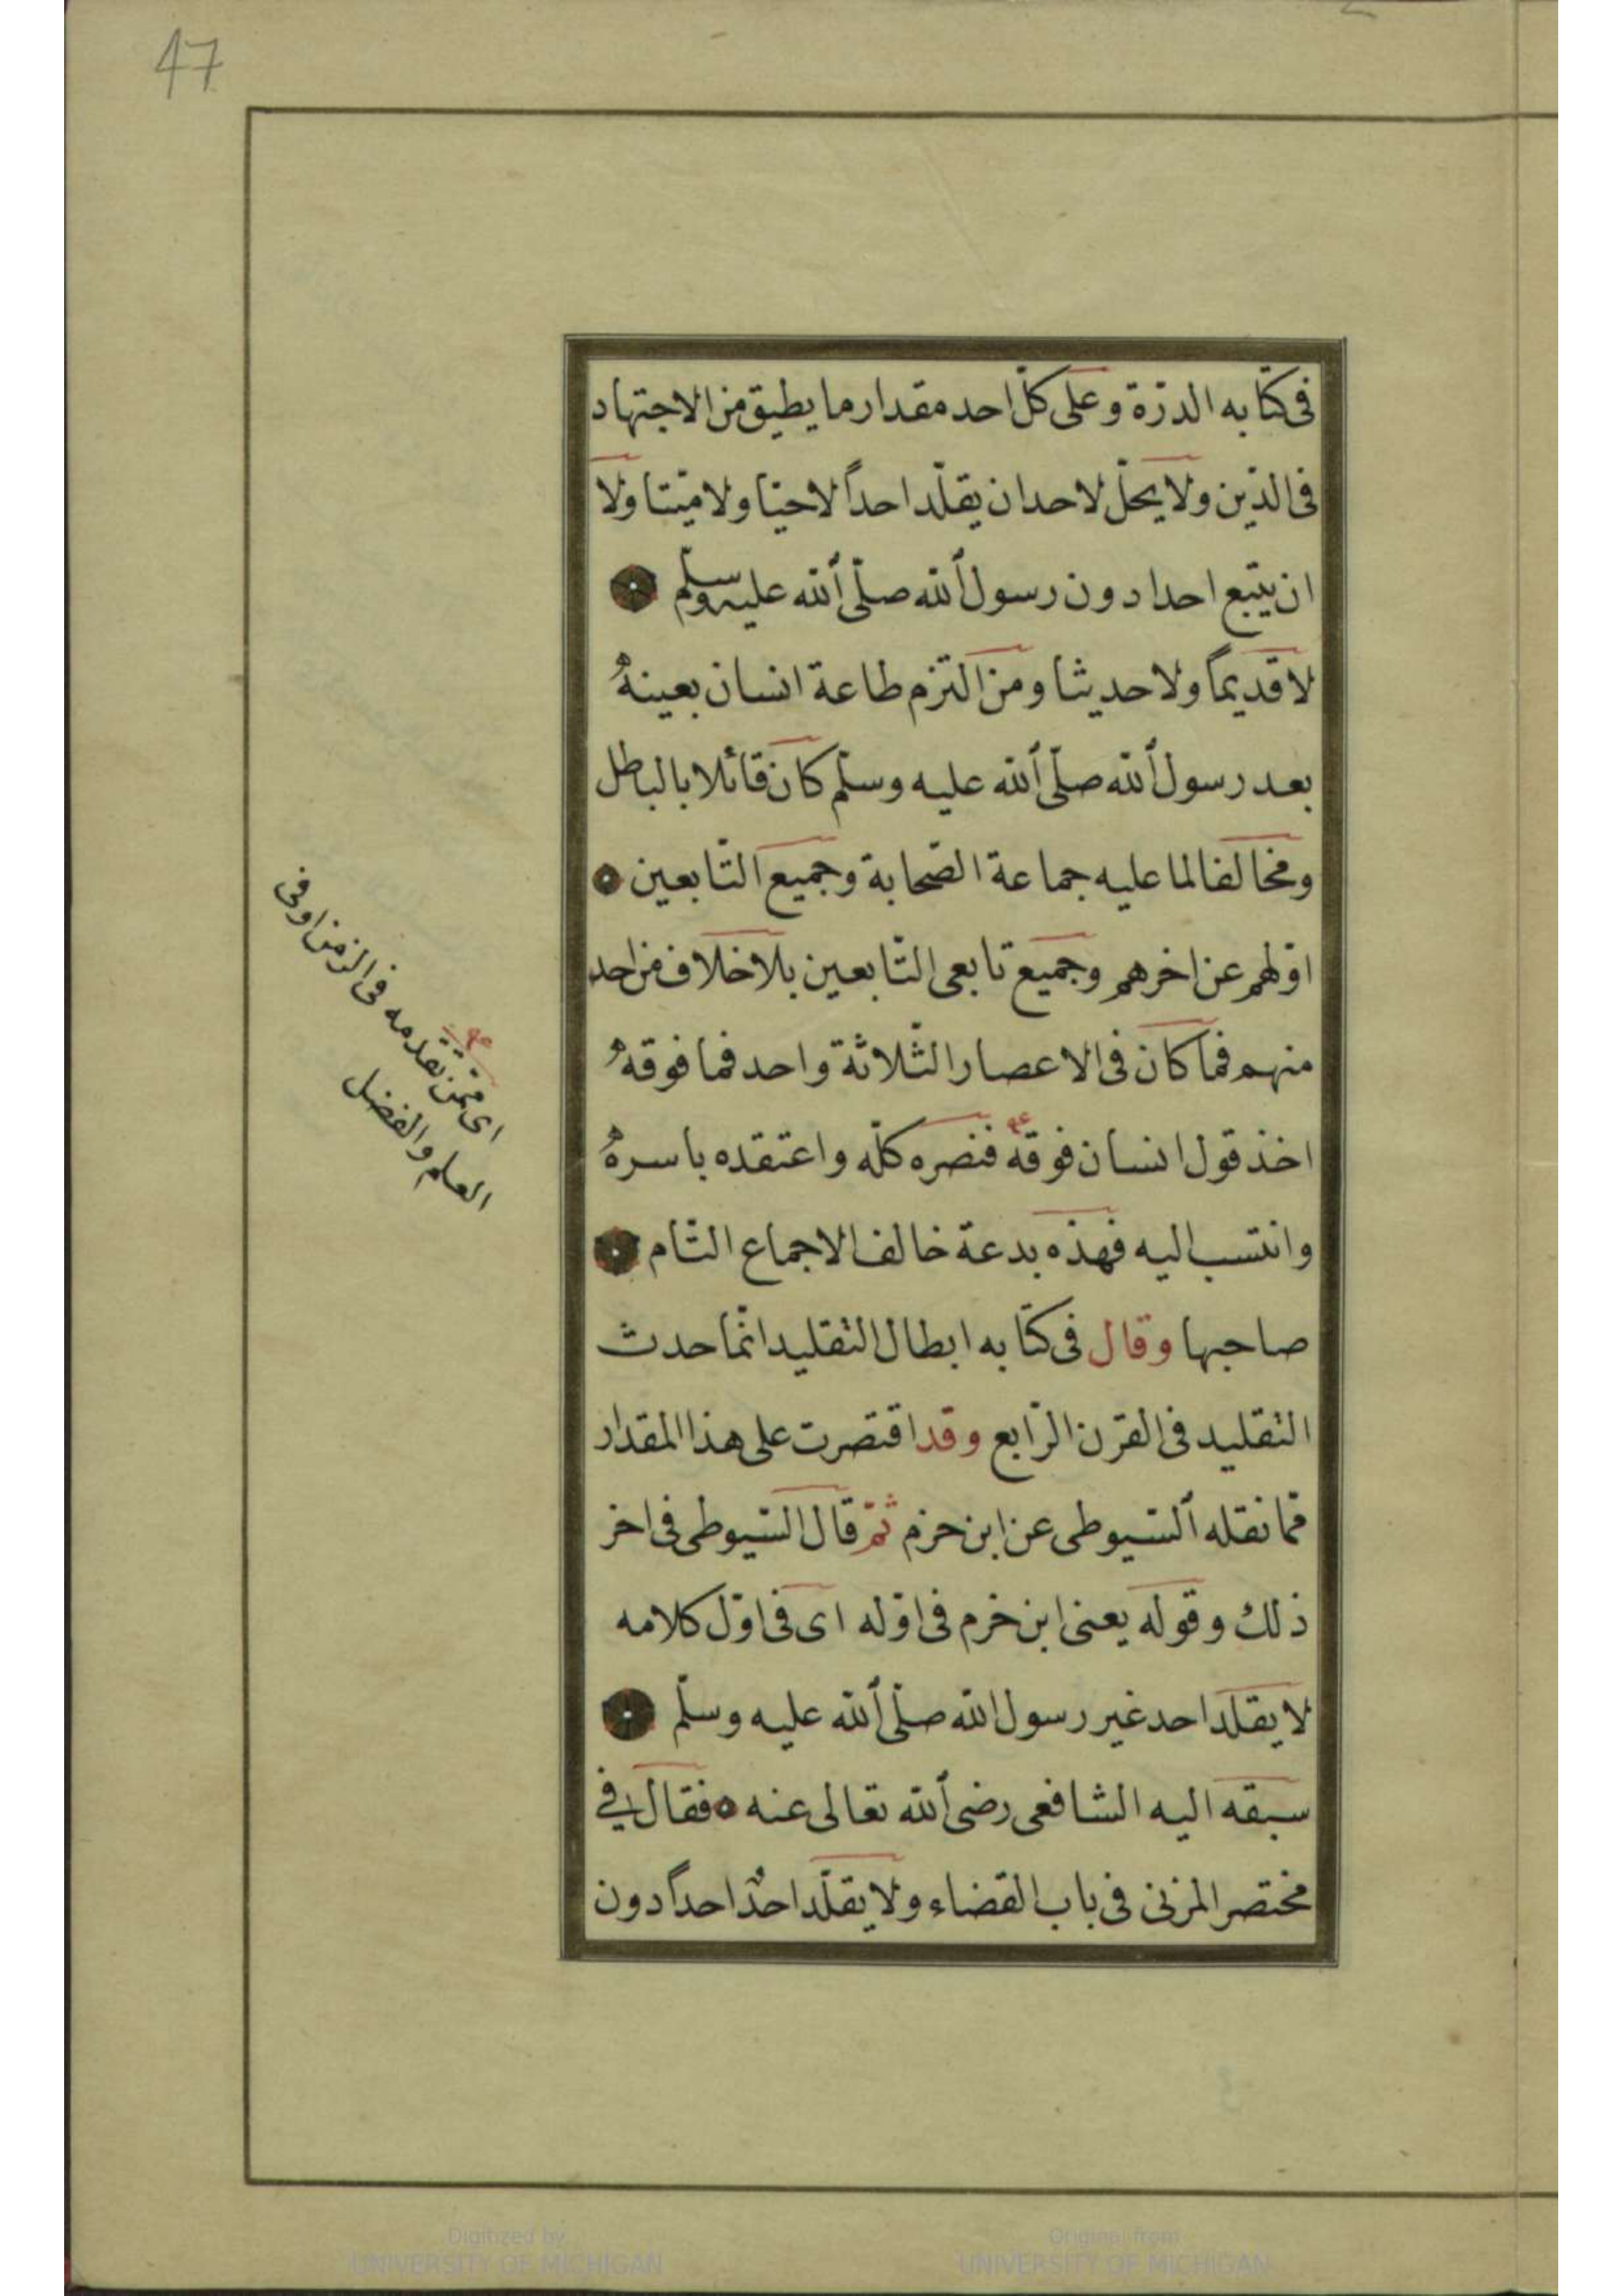 47
فى كتابه الدرّة وعلى كلّ احد مقدار ما يطيق من الاجتهاد
فى الدّين ولا يحلّ لاحد ان يقلّد احداً لا حيّا ولا ميّتا ولا
ان يتّبع احدا دون رسول الله صلّى الله عليه وسلّم
لا قديماً ولا حديثا ومن التزم طاعة انسان بعينهُ
بعد رسول الله صلّى الله عليه وسلّم كان قائلا بالباطل
ومخالفا لما عليه جماعة الصّحابة وجميع التّابعين
اوّلهم عن اخرهم وجميع تابعى التّابعين بلا خلاف من احد
منهم فما كان فى الاعصار الثّلاثة واحد فما فوقهُ
اخذ قول انسان فوقهُ فنصره كلّه واعتقده باسرهُ
وانتسب اليه فهذه بدعة خالف الاجماع التّام
صاحبها وقال فى كتابه ابطال التقليد انّما حدث
التقليد فى القرن الرّابع وقد اقتصرت على هذا المقدار
ممّا نقله السّيوطى عن ابن حزم ثمّ قال السّيوطى فى اخر
ذلك وقوله يعنى ابن خرم فى اوّله اى فى اوّل كلامه
لا يقلّد احد غير رسول الله صلّى الله عليه وسلّم
سبقه اليه الشافعى رضى الله تعالى عنه فقال فى
مختصر المزنى فى باب القضاء ولا يقلّد احدٌ احداً دون
اى ممّن تقدمه فى الزمن او فى
العلم والفضل
Digitized by
UNIVERSITY OF MICHIGAN
Original from
UNIVERSITY OF MICHIGAN